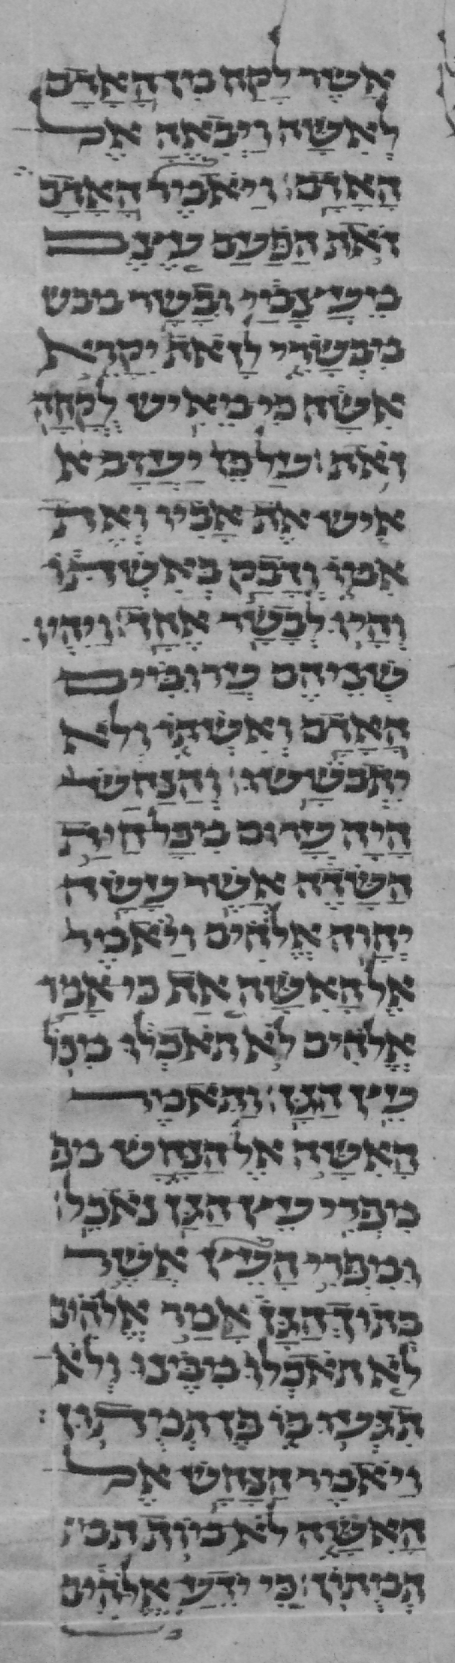 אשר לקח מן האדם
לאשה ויבאה אל
האדם׃ ויאמר האדם
זאת הפעם עצם
מעצמי ובשר מבש
מבשרי לזאת יקרא
אשה כי מאיש לקחה
זאת׃ על כן יעזב א
איש את אביו ואת
אמו ודבק באשתו
והיו לבשר אחד׃ ויהיו
שניהם ערומים
האדם ואשתו ולא
יתבששו׃ והנחש
היה ערום מכל חית
השדה אשר עשה
יהוה אלהים ויאמר
אל האשה אף כי אמר
אלהים לא תאכלו מכל
עץ הגן׃ ותאמר
האשה אל הנחש מפ
מפרי עץ הגן נאכל׃
ומפרי העץ אשר
בתוך הגן אמר אלהים
לא תאכלו ממנו ולא
תגעו בו פן תמתון׃
ויאמר הנחש אל
האשה לא מות תמת
תמתון׃ כי ידע אלהים